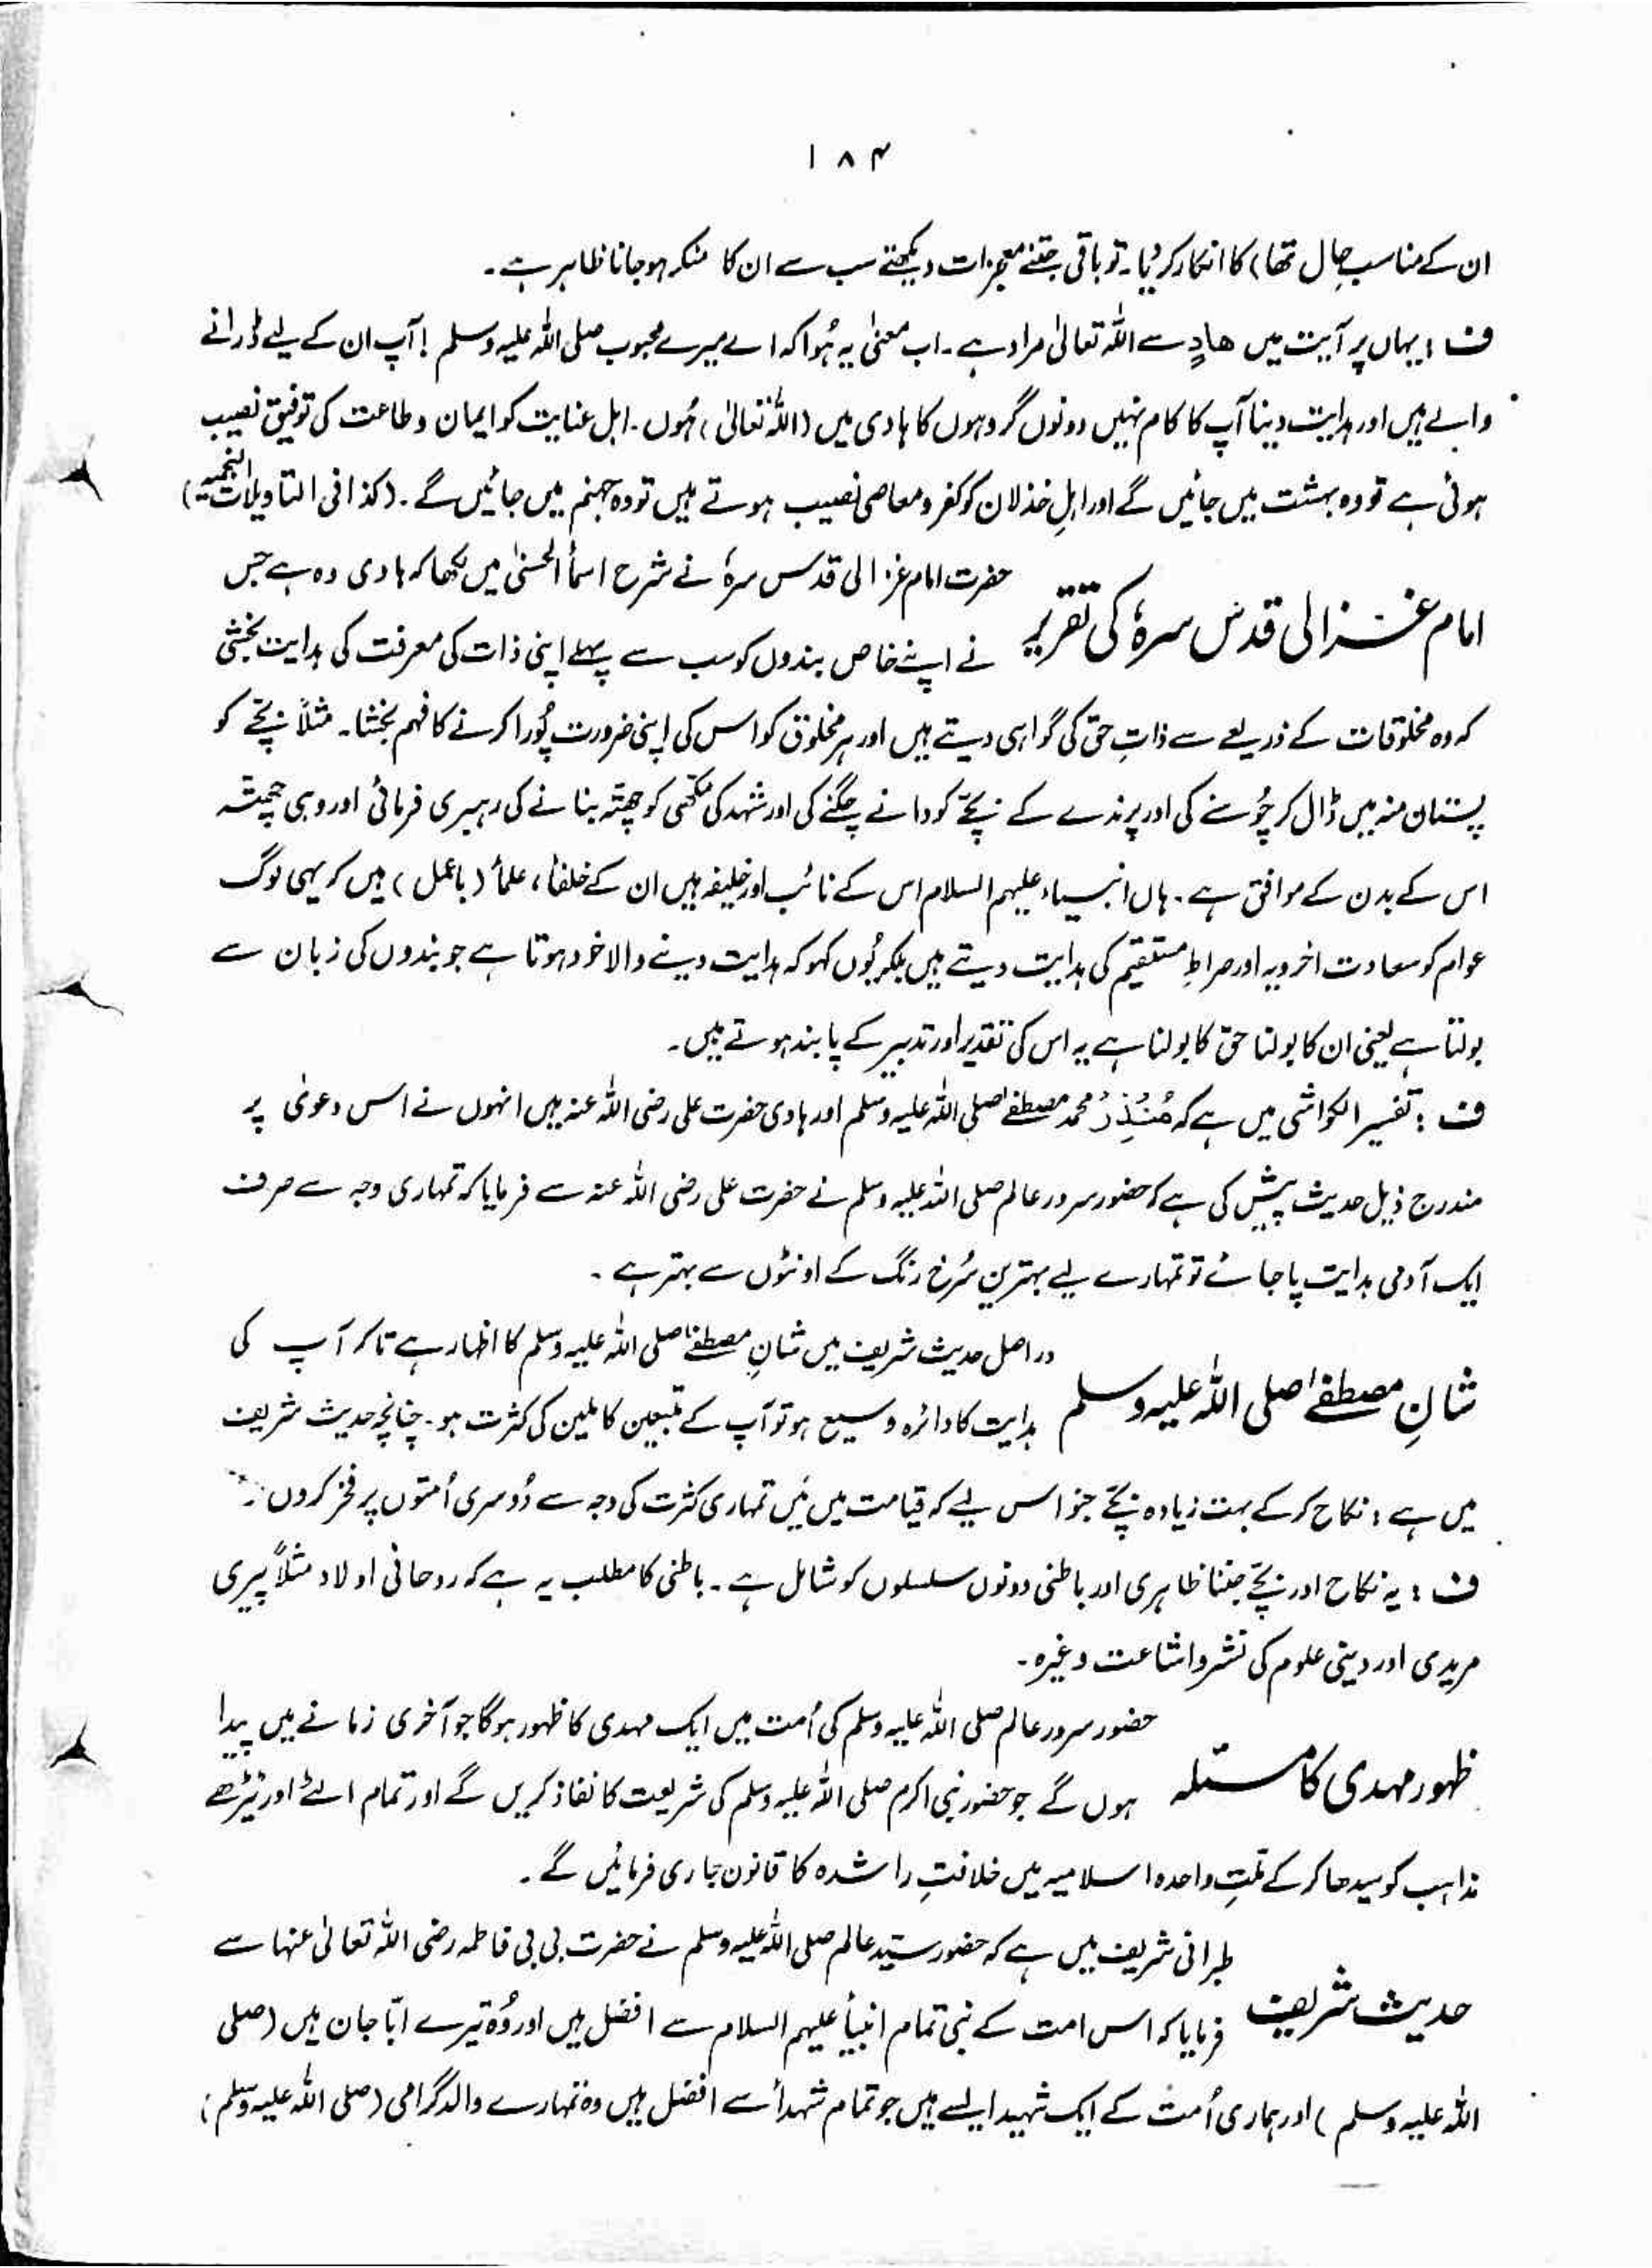 ۱۸۴
ان کے مناسبِ حال تھا) کا انکار کر دیا۔ تو باقی جتنے معجزات دیکھتے سب سے ان کا منکر ہو جانا ظاہر ہے۔
ف : یہاں پر آیت میں ھادٍ سے اللہ تعالیٰ مراد ہے۔ اب معنیٰ یہ ہُوا کہ اے میرے محبوب صلی اللہ علیہ وسلم ! آپ ان کے لیے ڈرانے
والے ہیں اور ہدایت دینا آپ کا کام نہیں دونوں گروہوں کا ہادی میں (اللہ تعالیٰ) ہُوں۔ اہل عنایت کو ایمان و طاعت کی توفیق نصیب
ہوئی ہے تو وہ بہشت میں جائیں گے اور اہلِ خذلان کو کفر و معاصی نصیب ہوتے ہیں تو وہ جہنم میں جائیں گے۔ (کذا فی التاویلات النجمیہ)
امام غزالی قدس سرہٗ کی تقریر
حضرت امام غزالی قدس سرہٗ نے شرح اسمأ الحسنیٰ میں لکھا کہ ہادی وہ ہے جس
نے اپنے خاص بندوں کو سب سے پہلے اپنی ذات کی معرفت کی ہدایت بخشی
کہ وہ مخلوقات کے ذریعے سے ذاتِ حق کی گواہی دیتے ہیں اور ہر مخلوق کو اس کی اپنی ضرورت پُورا کرنے کا فہم بخشا۔ مثلاً بچّے کو
پستان منہ میں ڈال کر چُوسنے کی اور پرندے کے بچّے کو دانے چگنے کی اور شہد کی مکّھی کو چھتّہ بنانے کی رہبری فرمائی اور وہی چھتہ
اس کے بدن کے موافق ہے۔ ہاں انبیاء علیہم السلام اس کے نائب اور خلیفہ ہیں ان کے خلفأ، علمأ (باعمل) ہیں کہ یہی لوگ
عوام کو سعادت اخرویہ اور صراطِ مستقیم کی ہدایت دیتے ہیں بلکہ یُوں کہو کہ ہدایت دینے والا خود ہوتا ہے جو بندوں کی زبان سے
بولتا ہے یعنی ان کا بولنا حق کا بولنا ہے یہ اس کی تقدیر اور تدبیر کے پابند ہوتے ہیں۔
ف : تفسیر الکواشی میں ہے کہ مُنْذِرُ محمد مصطفےٰ صلی اللہ علیہ وسلم اور ہادی حضرت علی رضی اللہ عنہ ہیں انہوں نے اس دعویٰ پر
مندرج ذیل حدیث پیش کی ہے کہ حضور سرور عالم صلی اللہ علیہ وسلم نے حضرت علی رضی اللہ عنہ سے فرمایا کہ تمہاری وجہ سے صرف
ایک آدمی ہدایت پا جائے تو تمہارے لیے بہترین سُرخ رنگ کے اونٹوں سے بہتر ہے۔
شانِ مصطفےٰ صلی اللہ علیہ وسلم
دراصل حدیث شریف میں شانِ مصطفےٰ صلی اللہ علیہ وسلم کا اظہار ہے تاکہ آپ کی
ہدایت کا دائرہ وسیع ہو تو آپ کے متبعین کاملین کی کثرت ہو۔ چنانچہ حدیث شریف
میں ہے : نکاح کر کے بہت زیادہ بچّے جنو اس لیے کہ قیامت میں مَیں تمہاری کثرت کی وجہ سے دُوسری اُمتوں پر فخر کروں۔
ف : یہ نکاح اور بچّے جننا ظاہری اور باطنی دونوں سلسلوں کو شامل ہے۔ باطنی کا مطلب یہ ہے کہ روحانی اولاد مثلاً پیری
مریدی اور دینی علوم کی نشر و اشاعت وغیرہ۔
ظہور مہدی کا مسئلہ
حضور سرور عالم صلی اللہ علیہ وسلم کی اُمت میں ایک مہدی کا ظہور ہوگا جو آخری زمانے میں پیدا
ہوں گے جو حضور نبی اکرم صلی اللہ علیہ وسلم کی شریعت کا نفاذ کریں گے اور تمام الٹے اور ٹیڑھے
مذاہب کو سیدھا کر کے ملّتِ واحدہ اسلامیہ میں خلافتِ راشدہ کا قانون جاری فرمائیں گے۔
حدیث شریف
طبرانی شریف میں ہے کہ حضور سیّد عالم صلی اللہ علیہ وسلم نے حضرت بی بی فاطمہ رضی اللہ تعالیٰ عنہا سے
فرمایا کہ اس امت کے نبی تمام انبیأ علیہم السلام سے افضل ہیں اور وُہ تیرے ابّا جان ہیں (صلی
اللہ علیہ وسلم) اور ہماری اُمت کے ایک شہید ایسے ہیں جو تمام شہدأ سے افضل ہیں وہ تمہارے والد گرامی (صلی اللہ علیہ وسلم)